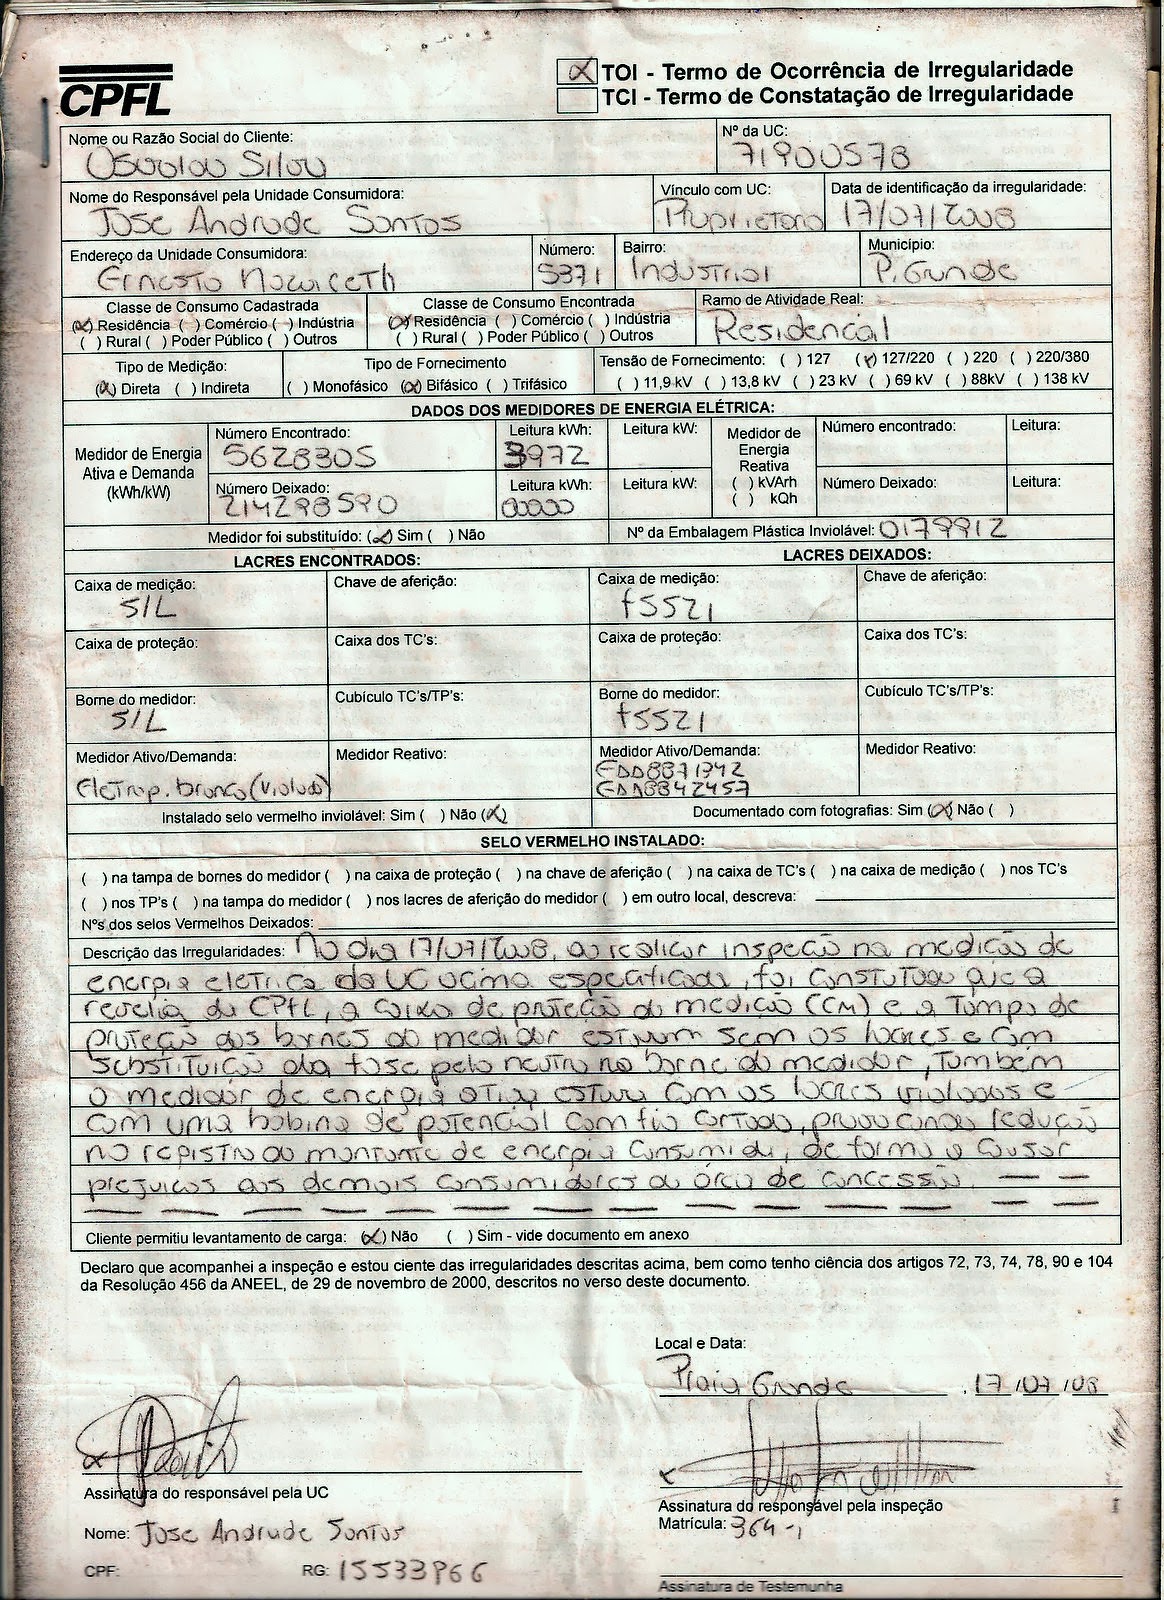 CPFL
(x) TOI - Termo de Ocorrência de Irregularidade
( ) TCI - Termo de Constatação de Irregularidade
Nome ou Razão Social do Cliente: Nº da UC:
Osvaldo Silva 71900578
Nome do Responsável pela Unidade Consumidora: Vínculo com UC: Data de identificação da irregularidade:
Jose Andrade Santos Proprietario 17/07/2008
Endereço da Unidade Consumidora: Número: Bairro: Município:
Ernesto Nazareth 5371 Industrial P. Grande
Classe de Consumo Cadastrada Classe de Consumo Encontrada Ramo de Atividade Real:
(x) Residência ( ) Comércio ( ) Indústria (x) Residência ( ) Comércio ( ) Indústria Residencial
( ) Rural ( ) Poder Público ( ) Outros ( ) Rural ( ) Poder Público ( ) Outros
Tipo de Medição: Tipo de Fornecimento Tensão de Fornecimento: ( ) 127 (x) 127/220 ( ) 220 ( ) 220/380
(x) Direta ( ) Indireta ( ) Monofásico (x) Bifásico ( ) Trifásico ( ) 11,9 kV ( ) 13,8 kV ( ) 23 kV ( ) 69 kV ( ) 88kV ( ) 138 kV
DADOS DOS MEDIDORES DE ENERGIA ELÉTRICA:
Medidor de Energia Ativa e Demanda (kWh/kW) Número Encontrado: Leitura kWh: Leitura kW: Medidor de Energia Reativa ( ) kVArh ( ) kQh Número encontrado: Leitura:
5628305 3972
Número Deixado: Leitura kWh: Leitura kW: Número Deixado: Leitura:
214298590 00000
Medidor foi substituído: (x) Sim ( ) Não Nº da Embalagem Plástica Inviolável: 0179912
LACRES ENCONTRADOS: LACRES DEIXADOS:
Caixa de medição: Chave de aferição: Caixa de medição: Chave de aferição:
S/L f5521
Caixa de proteção: Caixa dos TC's: Caixa de proteção: Caixa dos TC's:
Borne do medidor: Cubículo TC's/TP's: Borne do medidor: Cubículo TC's/TP's:
S/L f5521
Medidor Ativo/Demanda: Medidor Reativo: Medidor Ativo/Demanda: Medidor Reativo:
Eletrop. branco (violado) EDD8871942
EDD8842457
Instalado selo vermelho inviolável: Sim ( ) Não (x) Documentado com fotografias: Sim (x) Não ( )
SELO VERMELHO INSTALADO:
( ) na tampa de bornes do medidor ( ) na caixa de proteção ( ) na chave de aferição ( ) na caixa de TC's ( ) na caixa de medição ( ) nos TC's
( ) nos TP's ( ) na tampa do medidor ( ) nos lacres de aferição do medidor ( ) em outro local, descreva:
Nºs dos selos Vermelhos Deixados:
Descrição das Irregularidades: No dia 17/07/2008, ao realizar inspeção na medição de
energia eletrica da UC acima especificada, foi constatado que a
revelia da CPFL, a caixa de proteção da medição (CM) e a Tampa de
proteção dos bornes do medidor estavam sem os lacres e com
substituição da fase pelo neutro no borne do medidor, Também
o medidor de energia ativa estava com os lacres violados e
com uma bobina de potencial com fio cortado, provocando redução
no registro do montante de energia consumida, de forma a causar
prejuizos aos demais consumidores da área de concessão.
Cliente permitiu levantamento de carga: (x) Não ( ) Sim - vide documento em anexo
Declaro que acompanhei a inspeção e estou ciente das irregularidades descritas acima, bem como tenho ciência dos artigos 72, 73, 74, 78, 90 e 104
da Resolução 456 da ANEEL, de 29 de novembro de 2000, descritos no verso deste documento.
Local e Data:
Praia Grande, 17/07/08
x x
Assinatura do responsável pela UC Assinatura do responsável pela inspeção
Matrícula: 364-1
Nome: Jose Andrade Santos
CPF: RG: 15533966
Assinatura de Testemunha